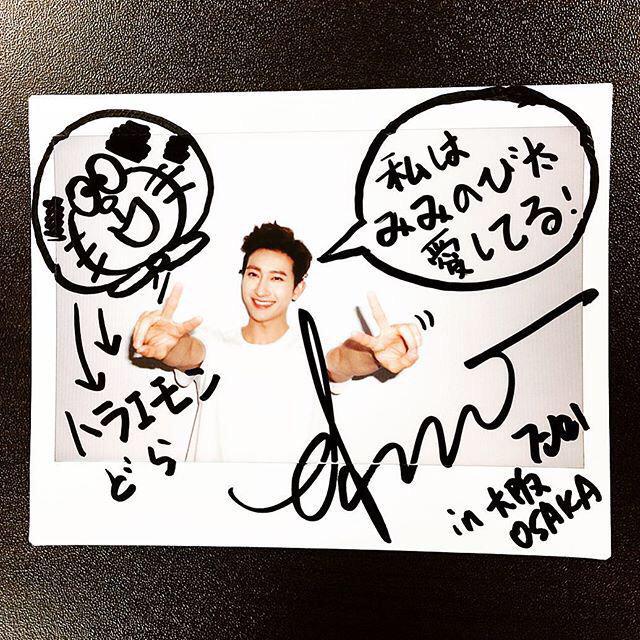 私は
みみのびた
愛してる!
ハラエモン
どら
in 大阪
OSAKA